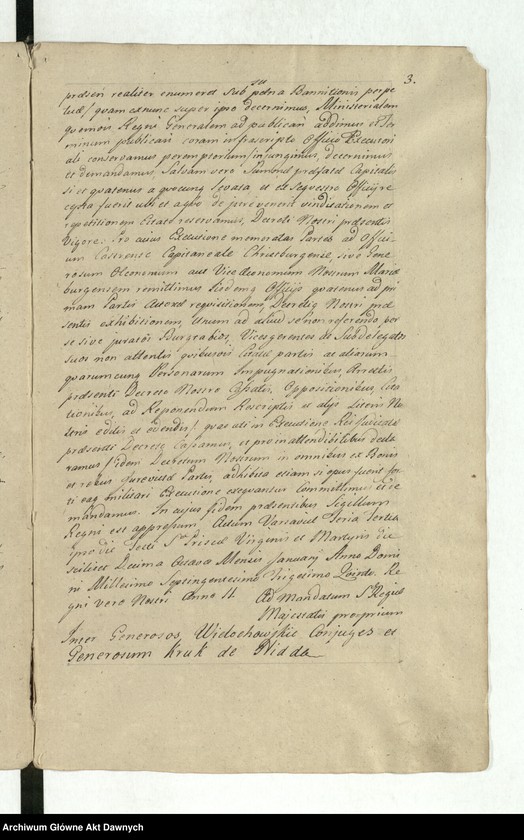 3.
præsens realiter enumeret sub pœna Bannitionis perpe
tuæ / quam ex nunc super ipso decernimus, Ministerialem
quemvis Regni Generalem ad publicand addimus et Ter
minum publicati coram infrascripto Officio Executi
ali conservamus peremptorium / injungimus, decernimus
et demandamus. Salvam vero Summæ præfatæ Capitalis
si et quatenus a quocunq levata et ex Sequestro Officij re
cepta fuerit ubi et a quo de jure venerit vindicationem et
repetitionem Citato reservamus, Decreti Nostri præsentis
vigore. Pro cujus Executione memoratas Partes ad Offici
um Castrense Capitaneale Christburgense, sive Gene
rosum Oeconomum aut Viceoeconomum Nostrum Marie
burgensem remittimus Eidemq Officijs quatenus ad pri
mam Partis Actoreæ requisitionem, Decretiq Nostri præ
sentis exhibitionem, unum ad aliud se non referendo, per
se sive juratos Burgrabios, Vicesgerentes et Subdelegatos
suos non attentis quibusvis Citatæ partis ac aliarum
quarumcunq Personarum Impugnationibus Arrestis
præsenti Decreto Nostro Cassatis, Oppositionibus,
tionibus, ad Reponendum Rescriptis et alijs Literis No
stris editis et edendis / quas uti in Executione Rei Judicatæ
præsenti Decreto Cassamus, et pro inattendibilibus decla
ramus / fidem Decretum Nostrum in omnibus ex Bonis
et rebus prævictæ Partis, adhibita etiam si opus fuerit for
ti eaq militari Executione exequantur Committimus et de
mandamus. In cujus fidem præsentibus Sigillum
Regni est appressum. Actum Varsaviæ Feria Tertia
pro die Festi Stæ Priscæ Virginis et Martyris die
scilicet Decima Octava Mensis Januarij Anno Domi
ni Millesimo Septingentesimo Trigesimo Quinto. Re
gni vero Nostri Anno II Ad Mandatum S. Regiæ
Majestatis proprium
Inter Generosos Widochowskie Conjuges et
Generosum Kruk de Nidda
Archiwum Główne Akt Dawnych